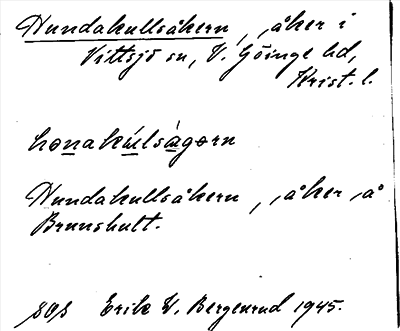 Hundakullsåkern, åker i
Vittsjö sn, V. Göinge hd,
Krist. l.
honakúlsàgorn
Hundakullsåkern, åker å
Brunshult.
Erik W. Bergenrud 1945.